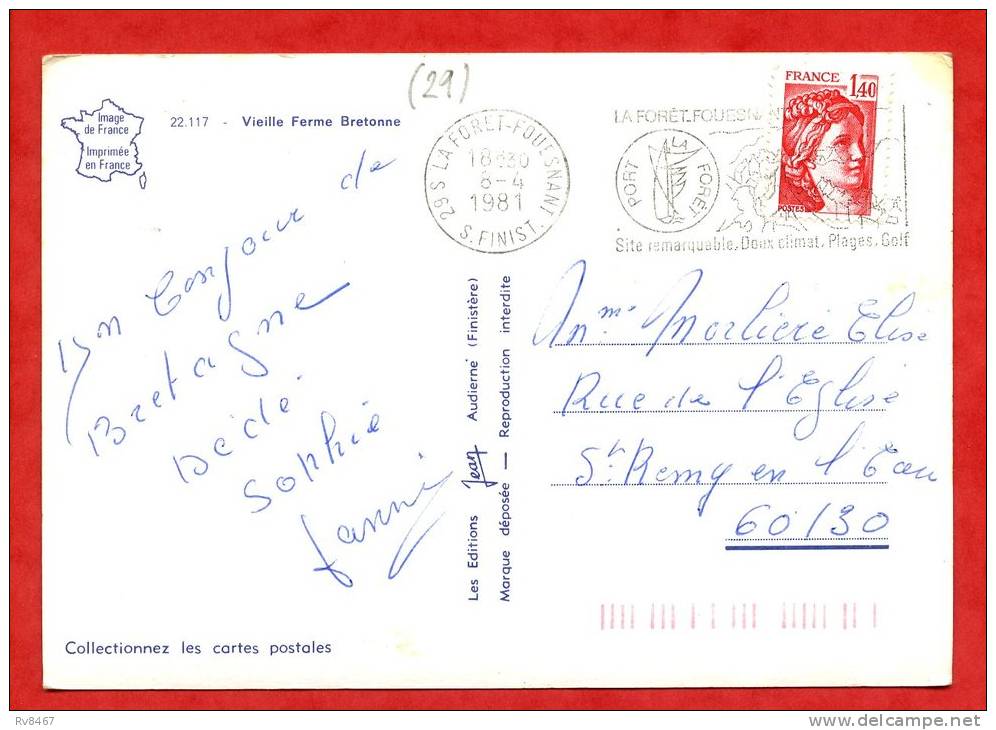 (29)
Image
de France
Imprimée
en France
22.117 - Vieille Ferme Bretonne
29 S LA FORET-FOUESNANT
18H30
6-4
1981
S. FINIST.
LA FORÊT-FOUESN
PORT LA FORÊT
Site remarquable. Doux climat. Plages. Golf
FRANCE
1,40
POSTES
Bonjour de
Bretagne
Dédé
Sophie
Fanny
Les Editions Jean Audierne (Finistère)
Marque déposée — Reproduction interdite
Morliere Elise
Rue de l'Eglise
St Remy en l'Eau
60130
Collectionnez les cartes postales
Rv8467
www.delcampe.net